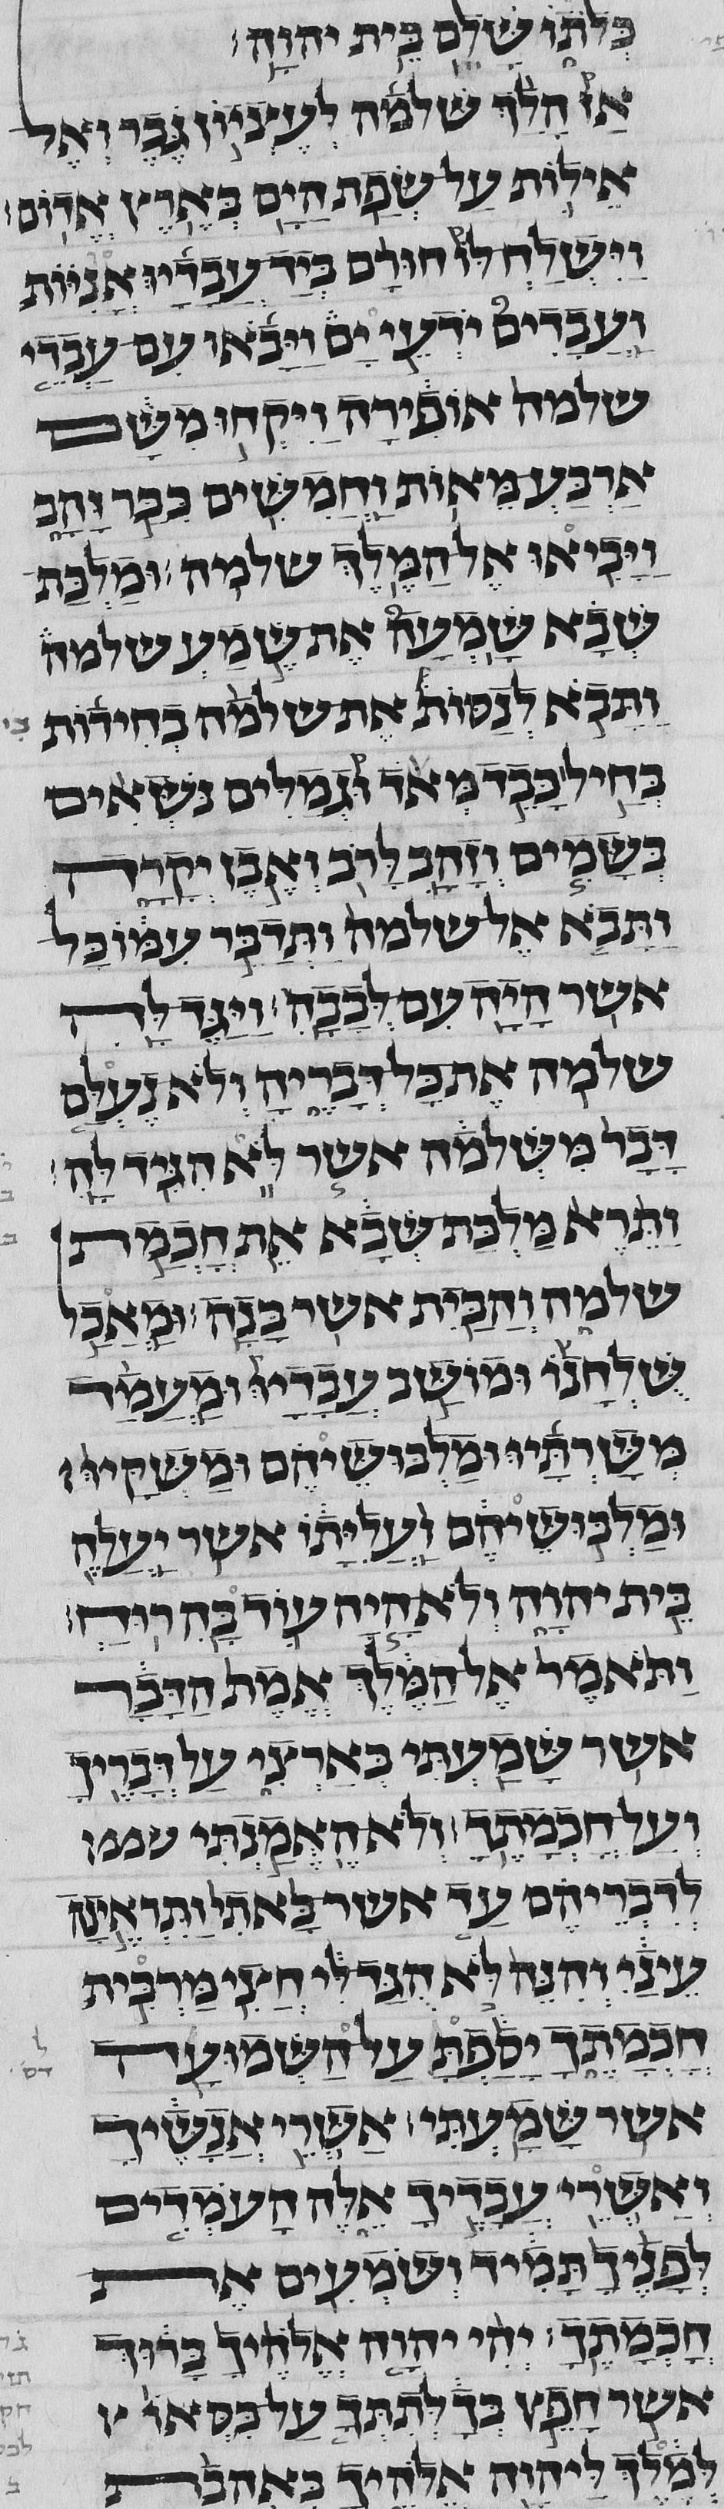 כְּלֹתוֹ שָׁלֵם בֵּית יהוה׃
אָז הָלַךְ שלמה לְעֶצְיוֹן גֶּבֶר וְאֶל
אֵילוֹת עַל שְׂפַת הַיָּם בְּאֶרֶץ אֱדוֹם׃
וַיִּשְׁלַח לוֹ חוּרָם בְּיַד עֲבָדָיו אֳנִיּוֹת
וַעֲבָדִים יֹדְעֵי יָם וַיָּבֹאוּ עִם עַבְדֵי
שלמה אוֹפִירָה וַיִּקְחוּ מִשָּׁם
אַרְבַּע מֵאוֹת וַחֲמִשִּׁים כִּכַּר זָהָב
וַיָּבִיאוּ אֶל הַמֶּלֶךְ שלמה׃ וּמַלְכַּת
שְׁבָא שָׁמְעָה אֶת שֵׁמַע שלמה
וַתָּבֹא לְנַסּוֹת אֶת שלמה בְחִידוֹת
בְּחַיִל כָּבֵד מְאֹד וּגְמַלִּים נֹשְׂאִים
בְּשָׂמִים וְזָהָב לָרֹב וְאֶבֶן יְקָרָה
וַתָּבֹא אֶל שלמה וַתְּדַבֵּר עִמּוֹ כָּל
אשר הָיָה עִם לְבָבָהּ׃ וַיַּגֶּד לָהּ
שלמה אֶת כָּל דְּבָרֶיהָ וְלֹא נֶעְלַם
דָּבָר מִשְּׁלֹמֹה אשר לֹא הִגִּיד לָהּ׃
וַתֵּרֶא מַלְכַּת שְׁבָא אֵת חָכְמַת
שלמה וְהַבַּיִת אשר בָּנָה׃ וּמַאֲכַל
שֻׁלְחָנוֹ וּמוֹשַׁב עֲבָדָיו וּמַעֲמַד
מְשָׁרְתָיו וּמַלְבּוּשֵׁיהֶם וּמַשְׁקָיו
וּמַלְבּוּשֵׁיהֶם וַעֲלִיָּתוֹ אשר יַעֲלֶה
בֵּית יהוה וְלֹא הָיָה עוֹד בָּהּ רוּחַ׃
וַתֹּאמֶר אֶל הַמֶּלֶךְ אֱמֶת הַדָּבָר
אשר שָׁמַעְתִּי בְּאַרְצִי עַל דְּבָרֶיךָ
וְעַל חָכְמָתֶךָ׃ וְלֹא הֶאֱמַנְתִּי
לְדִבְרֵיהֶם עַד אשר בָּאתִי וַתִּרְאֶינָה
עֵינַי וְהִנֵּה לֹא הֻגַּד לִי חֲצִי מַרְבִּית
חָכְמָתֶךָ יָסַפְתָּ עַל הַשְּׁמוּעָה
אשר שָׁמָעְתִּי׃ אַשְׁרֵי אֲנָשֶׁיךָ
וְאַשְׁרֵי עֲבָדֶיךָ אֵלֶּה הָעֹמְדִים
לְפָנֶיךָ תָּמִיד וְשֹׁמְעִים אֶת
חָכְמָתֶךָ׃ יְהִי יהוה אֱלֹהֶיךָ בָּרוּךְ
אשר חָפֵץ בְּךָ לְתִתְּךָ עַל כִּסְאוֹ
לְמֶלֶךְ לַיהוה אֱלֹהֶיךָ בְּאַהֲבַת